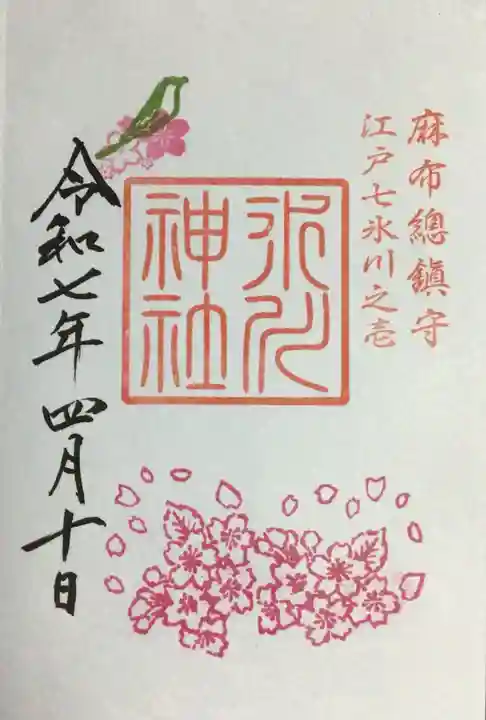 麻布總鎭守
江戸七氷川之壱
氷川
神社
令和七年四月十日